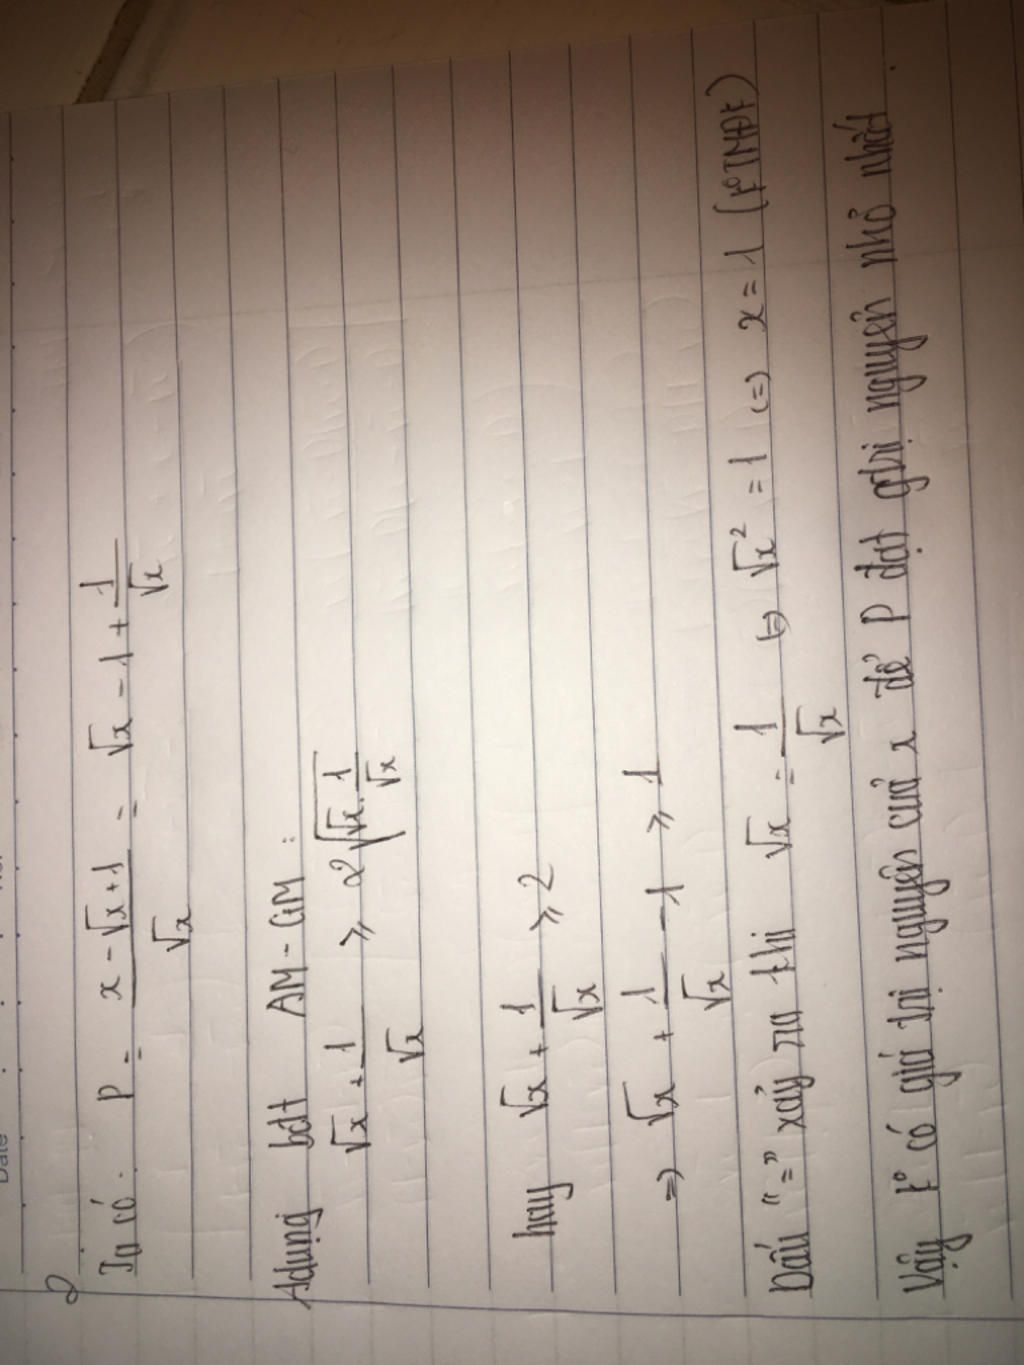 2
Ta có : P = \frac{x - √x + 1}{√x} = √x - 1 + \frac{1}{√x}
Adụng bđt AM - GM :
√x + \frac{1}{√x} ⩾ 2\sqrt{√x . \frac{1}{√x}}
hay √x + \frac{1}{√x} ⩾ 2
=> √x + \frac{1}{√x} - 1 ⩾ 1
Dấu "=" xảy ra khi √x = \frac{1}{√x} (=) √x² = 1 (=) x = 1 (k⁰TMĐK)
Vậy k⁰ có giá trị nguyên của x để P đạt gtrị nguyên nhỏ nhất.
Date